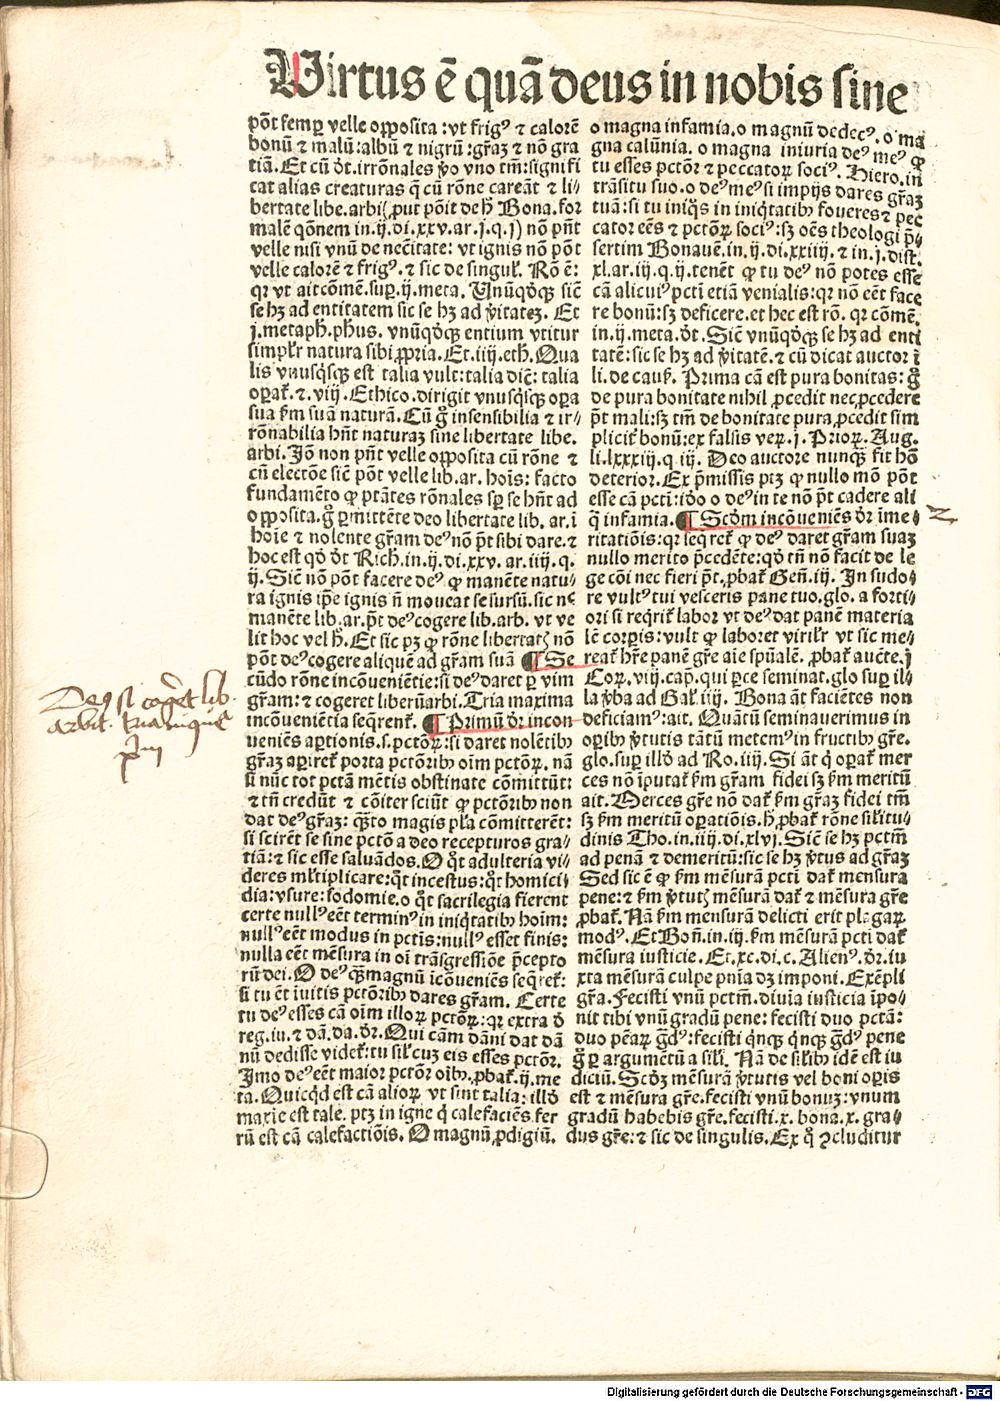 Uirtus ē quā deus in nobis sine
pōt semꝑ velle opposita : vt frigꝰ ⁊ calorē
bonū ⁊ malū : albū ⁊ nigrū : grāꝫ ⁊ nō gra
tiā. Et cū dt. irrōnales ꝟo vno tm̄ : signifi
cat alias creaturas q̄ cū rōne careāt ⁊ li⸗
bertate libe. arbi(, put pōit de h̄ Bona. for
malē qōnem in .ij. di. xxv. ar. j. q. j) nō pn̄t
velle nisi vnū de nec̄itate : vt ignis nō pōt
velle calorē ⁊ frigꝰ. ⁊ sic de singul. Rō ē :
qꝛ vt ait cōmē. suꝑ .ij. meta. Unūqd̄qꝫ sic̄
se hꝫ ad entitatem sic se hꝫ ad ꝟitateꝫ. Et
j. metaph. phus. vnūqd̄qꝫ entium vtitur
simplr natura sibi ꝓpria. Et .iiij. eth. Qua
lis vnusqsqꝫ est talia vult : talia dic̄ : talia
opat̄. ⁊ .viij. Ethico. dirigit vnusqsqꝫ opa
sua ẜm suā naturā. Cū g̊ insensibilia ⁊ ir⸗
rōnabilia hn̄t naturaꝫ sine libertate libe.
arbi. Jō non pn̄t velle opposita cū rōne ⁊
cū electōe sic̄ pōt velle lib. ar. hoīs : facto
fundamēto ꝙ ptātes rōnales sꝑ se hn̄t ad
opposita. g̊ ꝑmittēte deo libertate lib. ar. ī
hoīe ⁊ nolente grām deꝰ nō pt̄ sibi dare. ⁊
hoc est qd̄ dt Rich. in .ij. di. xxv. ar. iiij. q.
ij. Sic̄ nō pōt facere deꝰ ꝙ manēte natu⸗
ra ignis ip̄e ignis n̄ moueat se sursū. sic ne
manēte lib. ar. pt̄ deꝰ cogere lib. arb. vt ve
lit hoc vel h̄. Et sic pꝫ ꝙ rōne libertatꝭ nō
pōt deꝰ cogere aliquē ad grām suā ¶ Se
cūdo rōne incōueniētie : si deꝰ daret ꝑ vim
grām : ⁊ cogeret liberū arbi. Tria maxima
incōueniētia seqrent̄. ¶ Primū dr̄ incon
ueniēs aptionis .s. pctōꝝ : si daret nolētibꝰ
grāꝫ apiret̄ porta pctōribꝰ oīm pctōꝝ. nā
si nūc tot pctā mētis obstinate cōmittūt :
⁊ tn̄ credūt ⁊ cōiter sciūt ꝙ pctōribꝰ non
dat deꝰ grāꝫ : qn̄to magis pla cōmitterēt :
si scirēt se sine pctō a deo recepturos gra⸗
tiā : ⁊ sic esse saluādos. O qt adulteria vi⸗
deres ml̄tiplicare : qt incestus : qt homici⸗
dia : vsure : sodomie. o qt sacrilegia fierent
certe nullꝰ eēt terminꝰ in iniqtatibꝰ hoīm :
nullꝰ eēt modus in pctīs : nullꝰ esset finis :
nulla eēt mēsura in oī trāsgressiōe p̄cepto
rū dei. O deꝰ qꝫ magnū īcōueniēs seqret̄ :
si tu ēt īuitis pctōribꝰ dares grām. Certe
tu deꝰ esses cā oīm illoꝝ pctōꝝ : qꝛ extra d̄
reg. iu. ⁊ dā. da. dr̄. Qui cām dāni dat dā
nū dedisse videt̄ : tu sil̄ cuꝫ eis esses pctōr.
Jmo deꝰ eēt maior pctōr oībꝰ, pbat̄ .ij. me
ta. Quicqd est cā alioꝝ vt sint talia : illd̄
maxīe est tale. ptꝫ in igne q̄ calefaciēs fer
rū est cā calefactiōis. O magnū ꝓdigiū.
o magna infamia. o magnū dedecꝰ. o ma
gna calūnia. o magna iniuria deꝰ meꝰ ꝙ
tu esses pctōꝝ ⁊ peccatoꝝ sociꝰ. Hiero. in
trāsitu suo. o deꝰ meꝰ si impijs dares grāꝫ
tuā : si tu iniqs in iniqtatibꝰ foueres ⁊ pec
catoꝝ eēs ⁊ pctōꝝ sociꝰ : sꝫ oēs theologi p̄⸗
sertim Bonauē. in .ij. di. xxiiij. ⁊ in .j. dist.
xl. ar. iij. q. ij. tenēt ꝙ tu deꝰ nō potes esse
cā alicuiꝰ pctī etiā venialis : qꝛ nō eēt face
re bonū : sꝫ deficere. et hec est rō. qꝛ cōmē.
in .ij. meta. dt. Sic̄ vnūqd̄qꝫ se hꝫ ad enti
tatē : sic se hꝫ ad ꝟitatē. ⁊ cū dicat auctor ī
li. de caus̄. Prima cā est pura bonitas : g̊
de pura bonitate nihil ꝓcedit nec ꝓcedere
pt̄ mali : sꝫ tm̄ de bonitate pura ꝓcedit sim
plicit̄ bonū : ex falsis veꝝ .j. Prioꝝ. Aug.
li. lxxxiij. q. iij. Deo auctore nunqꝫ fit hō
deterior. Ex p̄missis ptꝫ ꝙ nullo mō pōt
esse cā pctī : iō o deꝰ in te nō pt̄ cadere ali
q̄ infamia. ¶ Scd̄m incōueniēs dr̄ īme⸗
ritatiōis : qꝛ seqret̄ ꝙ deꝰ daret grām suaꝫ
nullo merito p̄cedēte : qd̄ tn̄ nō facit de le
ge cōi nec fieri pt̄, pbat̄ Gen̄. iij. Jn sudo⸗
re vultꝰ tui vesceris pane tuo. glo. a forti⸗
ori si reqrit̄ labor vt deꝰ dat panē materia
lē corpis : vult ꝙ laboret virilr vt sic me⸗
reat̄ hr̄e panē gr̄e aīe spūalē. ꝓbat̄ aucte. j
Coꝝ. viij. cap. qui ꝑce seminat. glo suꝑ il⸗
la ꝟba ad Gal. iiij. Bona āt faciētes non
deficiamꝰ : ait. Quātū seminauerimus in
opibꝰ ꝟtutis tātū metemꝰ in fructibꝰ gr̄e.
glo. suꝑ illd̄ ad Ro. iiij. Si āt q̄ opat̄ mer
ces nō īputat̄ ẜm grām fidei sꝫ ẜm meritū
ait. Merces gr̄e nō dat̄ ẜm grāꝫ fidei tm̄
sꝫ ẜm meritū opatiōis. h̄ ꝓbat̄ rōne sil̄itu⸗
dinis Tho. in .iiij. di. xlvj. Sic̄ se hꝫ pctm̄
ad penā ⁊ demeritū : sic se hꝫ ꝟtus ad grāꝫ
Sed sic ē ꝙ ẜm mēsurā pctī dat̄ mensura
pene : ⁊ ẜm ꝟtutꝭ mēsurā dat̄ ⁊ mēsura gr̄e
ꝓbat̄. Nā ẜm mensurā delicti erit plagaꝝ
modꝰ. Et Bon̄. in .iij. ẜm mēsurā pctī dat̄
mēsura iusticie. Et. xc. di. c. Alienꝰ. dr̄. iu
xta mēsurā culpe pn̄ia dꝫ imponi. Exēpli
gr̄a. Fecisti vnū pctm̄. diuīa iusticia īpo⸗
nit tibi vnū gradū pene : fecisti duo pctā :
duo peāꝝ gd̄ꝰ : fecisti qnqꝫ qnqꝫ gd̄ꝰ pene
g̊ ꝑ argumētū a sil̄i. Nā de sil̄ibꝰ idē est iu
diciū. Scd̄ꝫ mēsurā ꝟtutis vel boni opis
est ⁊ mēsura gr̄e. fecisti vnū bonuꝫ : vnum
gradū habebis gr̄e. fecisti .x. bona .x. gra⸗
dus gr̄e : ⁊ sic de singulis. Ex q̊ ꝯcluditur
2
Deꝰ si cogeret lib.
arbit.